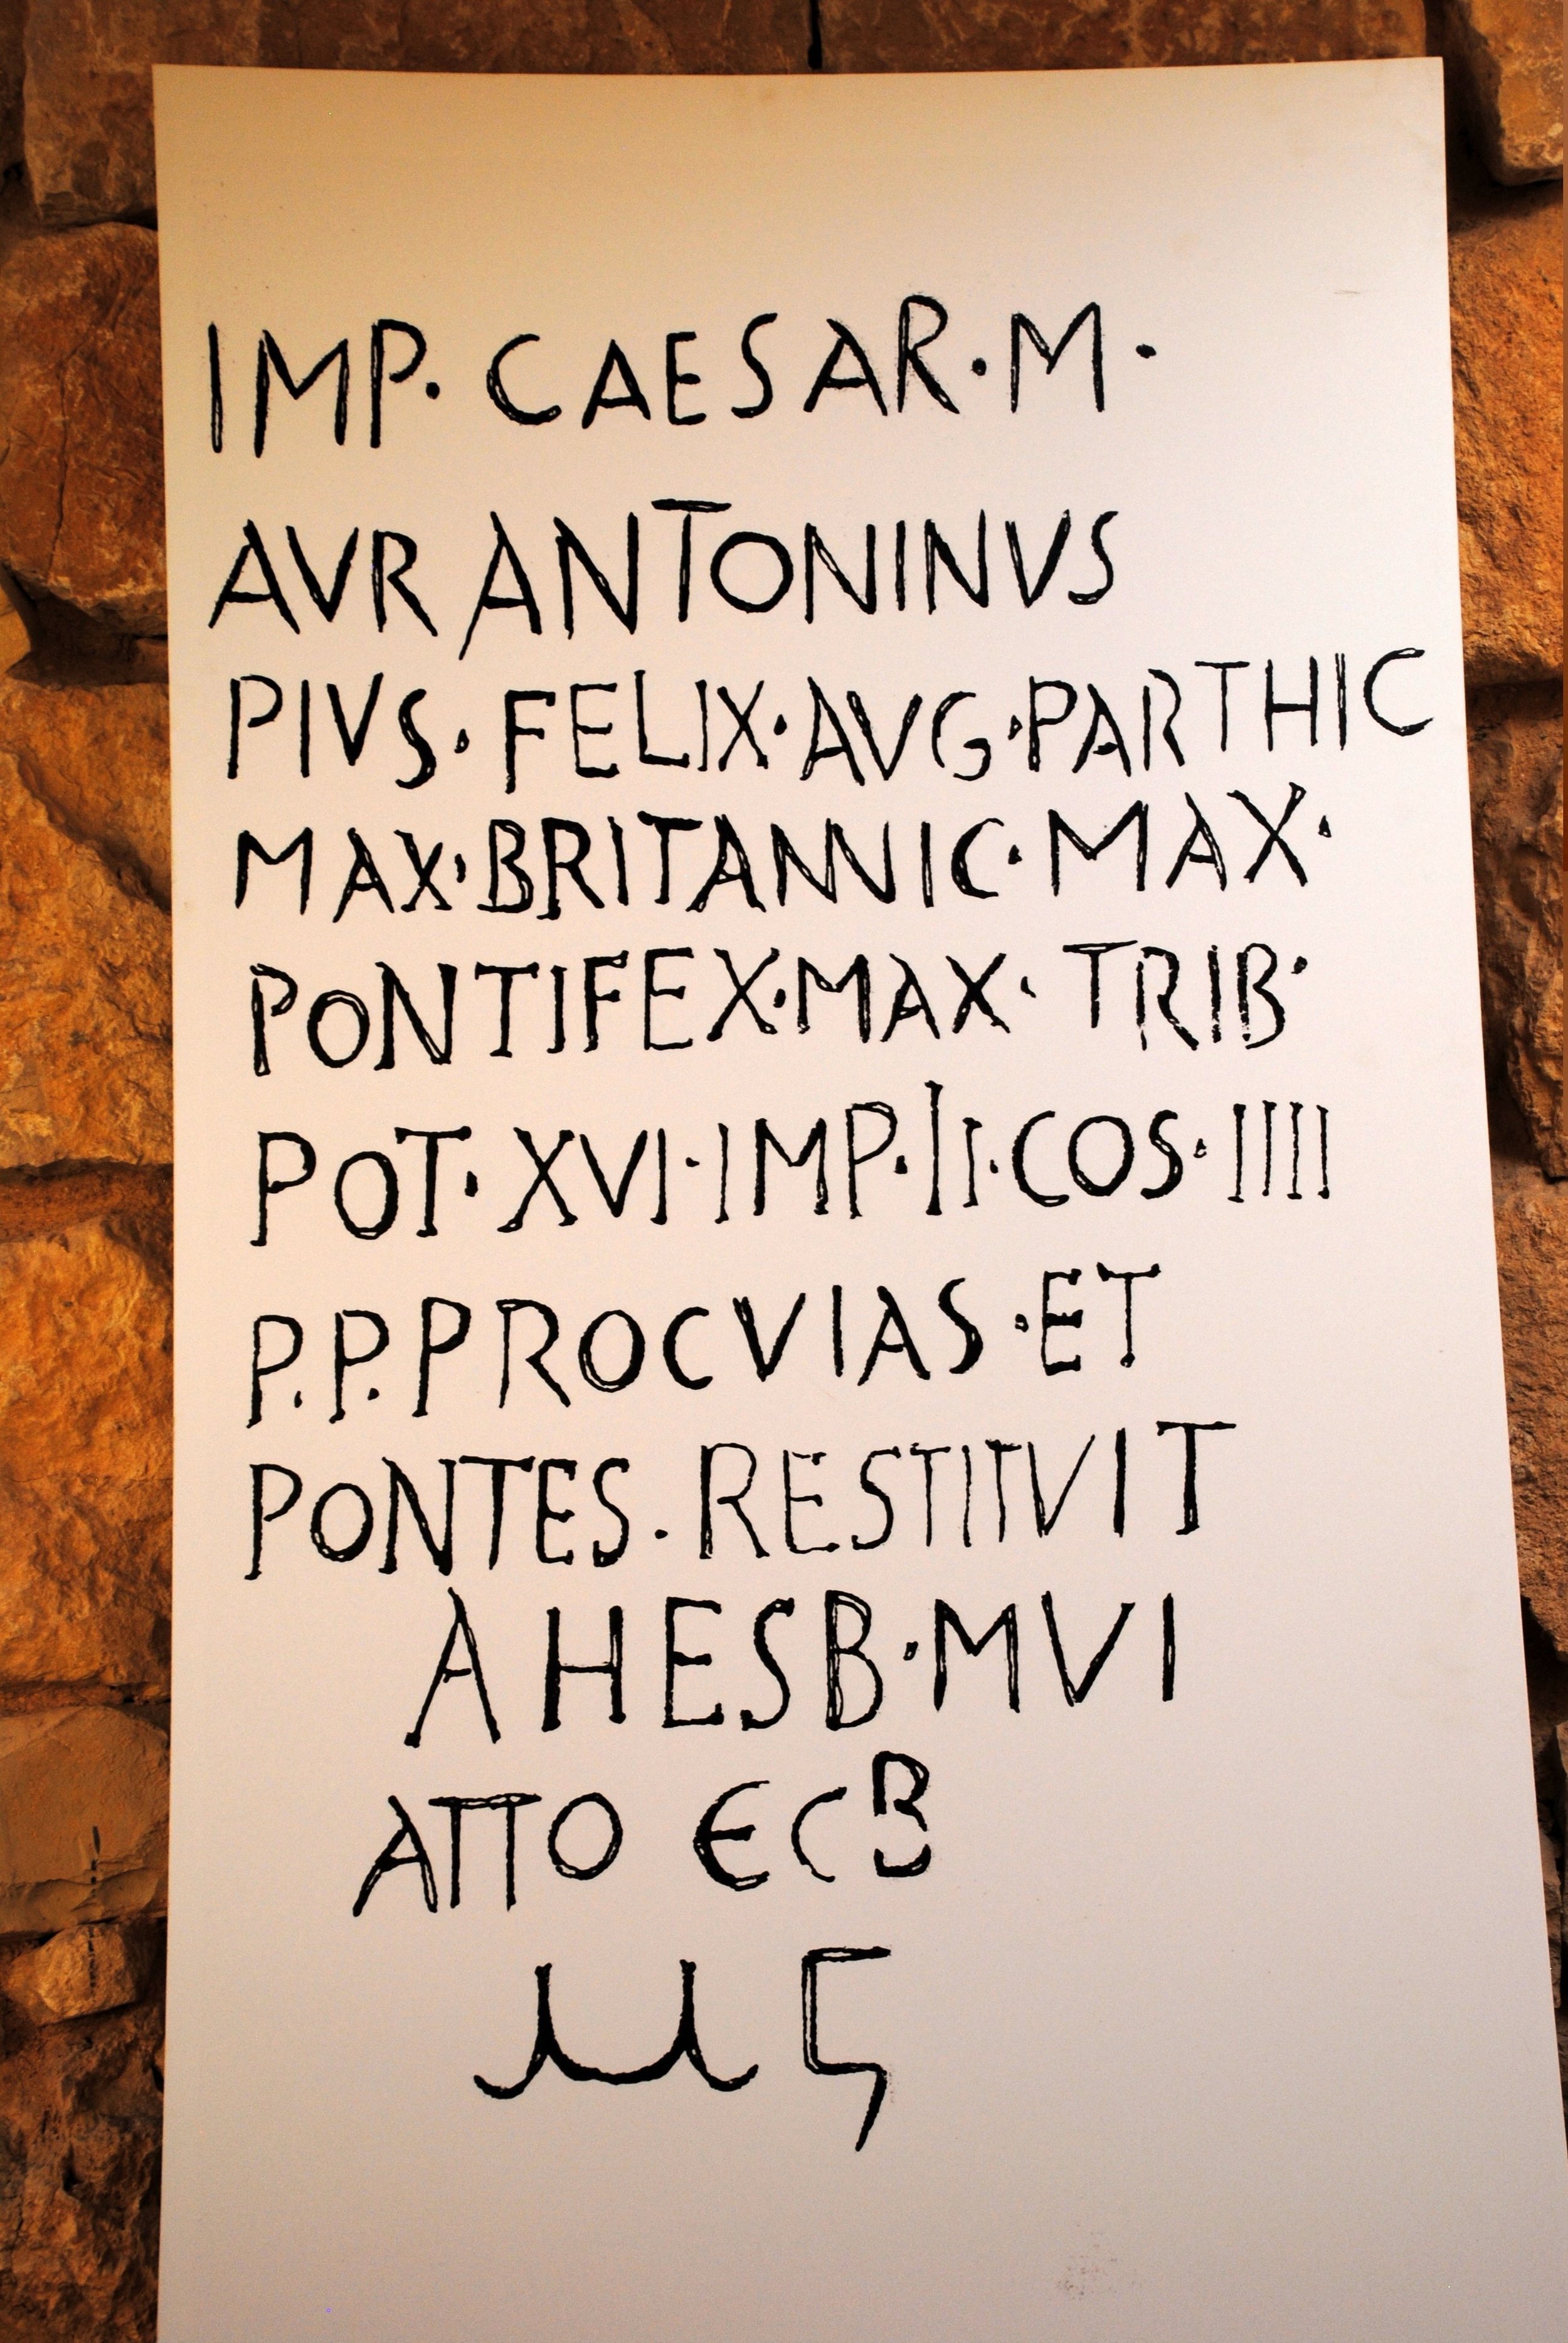 IMP· CAESAR·M·
AVR ANTONINVS
PIVS· FELIX·AVG·PARTHIC
MAX·BRITANNIC·MAX·
PONTIFEX·MAX· TRIB·
POT· XVI·IMP·II·COS·IIII
P.P.PROCVIAS·ET
PONTES·RESTITVIT
A HESB·MVI
ΑΠΟ ЄСΒ
μ Ϛ